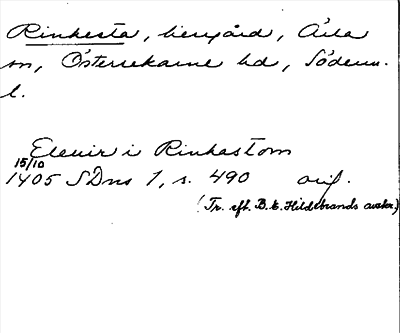 Rinkesta, herrgård, Ärla
sn, Österrekarne hd, Söderm.
l.
Elevir i Rinkastom
15/10
1405 SDns 1, s. 490 avs.
(Tr. eft. B. E. Hildebrands avskr.)